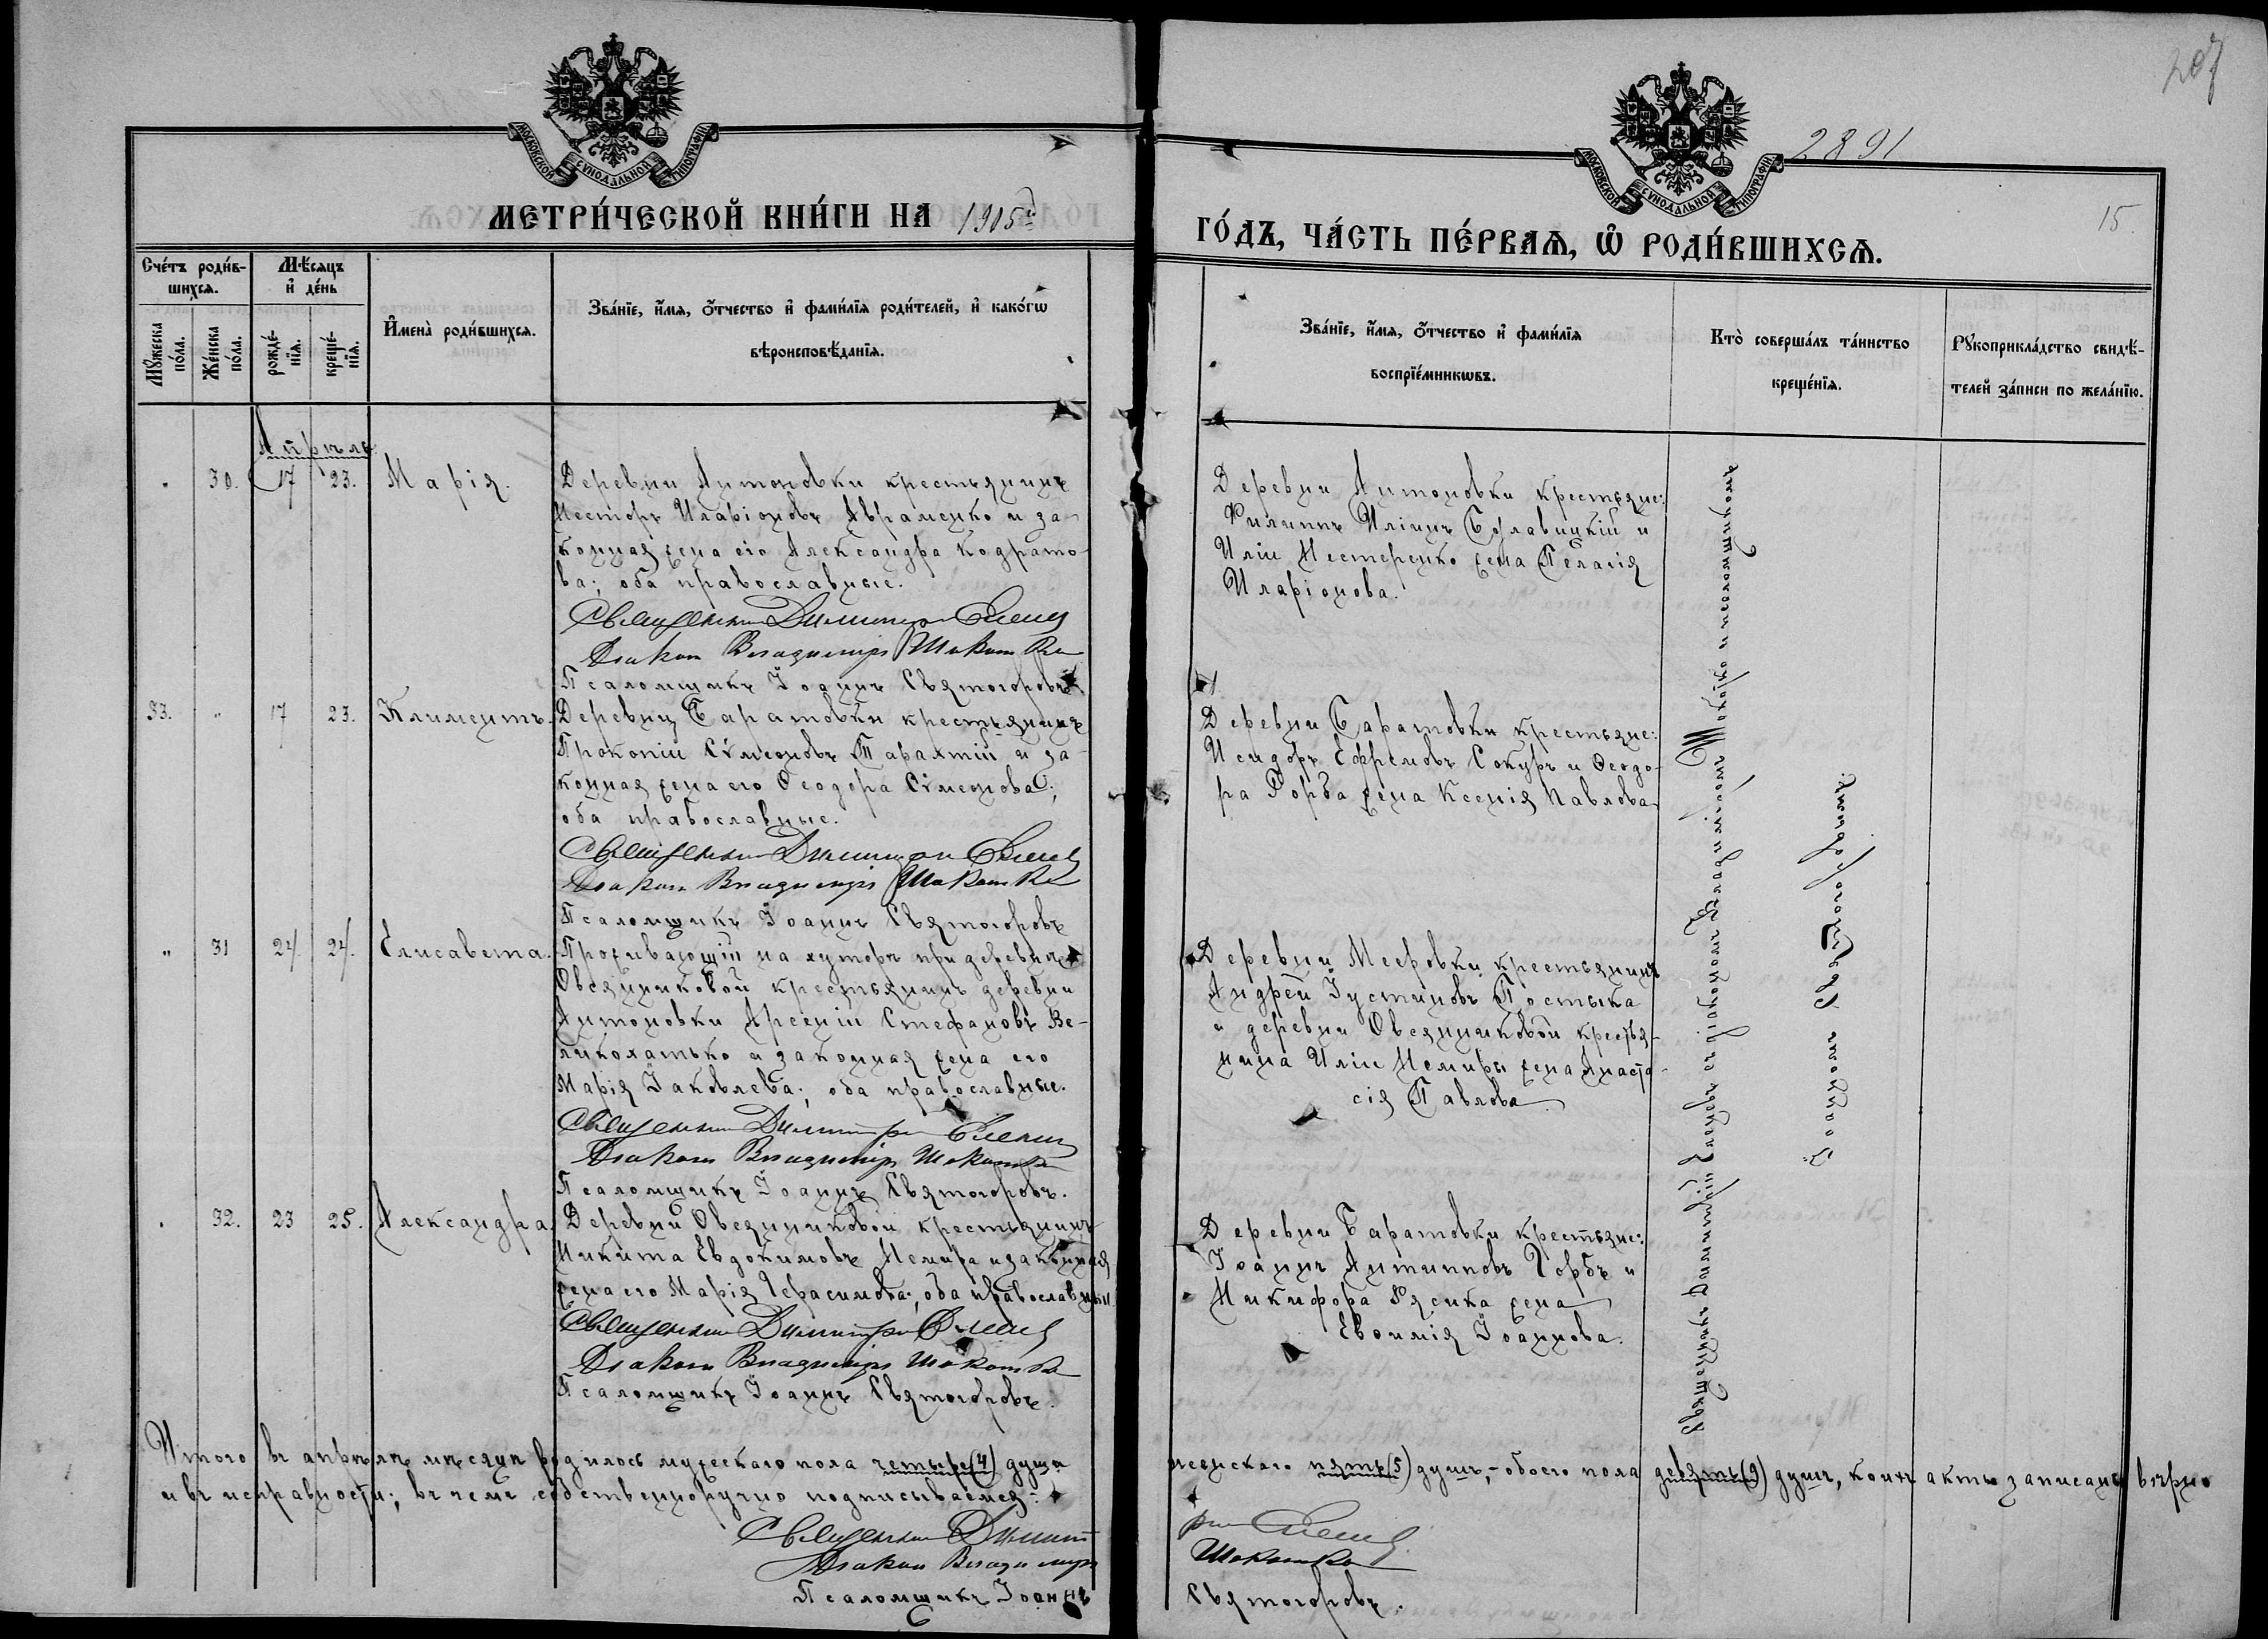 207
2891
15.
МОСКОВСКОЙ СѴНОДАЛЬНОЙ ТИПОГРАФІИ
МОСКОВСКОЙ СѴНОДАЛЬНОЙ ТИПОГРАФІИ
МЕТРИ́ЧЕСКОЙ КНИ́ГИ НА 1905й
ГО́ДЪ, ЧА́СТЬ ПЕ́РВАЯ, Ѡ҆ РОДИ́ВШИХСЯ.
Сче́тъ роди́в-
шихся.
Мѣ́сяцъ
и҆ де́нь
Мꙋжеска
по́ла.
Же́нска
по́ла.
рожде́-
нїя.
креще́-
нїя.
И҆мена̀ роди́вшихся.
Зва́нїе, и҆́мя, ѻ҆́тчество и҆ фами́лїя роди́телей, и҆ како́гѡ
вѣроисповѣ́данїя.
Зва́нїе, и҆́мя, ѻ҆́тчество и҆ фами́лїя
воспрїе́мникѡвъ.
Кто̀ соверша́лъ та́инство
креще́нїя.
Рꙋкоприкла́дство свидѣ́-
телей за́писи по жела́нїю.
Апрѣль.
" 30. 17 23. Марія.
Деревни Антоновки крестьянинъ
Несторъ Иларіоновъ Авраменко и за-
конная жена его Александра Кодрато-
ва; оба православные.
Священникъ Димитрій Еленевъ
Діаконъ Владиміръ Шокотко
Псаломщикъ Іоаннъ Святогоровъ
Деревни Антоновки крестьяне:
Филиппъ Иліинъ Буславицкій и
Иліи Нестеренко жена Пелагія
Иларіонова.
33. " 17 23. Климентъ.
Деревни Баратовки крестьянинъ
Прокопій Сѵмеоновъ Парахтій и за-
конная жена его Ѳеодора Сѵмеонова;
оба православные.
Священникъ Димитрій Еленевъ
Діаконъ Владиміръ Шокотко
Псаломщикъ Іоаннъ Святогоровъ
Деревни Баратовки крестьяне:
Исидоръ Ефремовъ Сокуръ и Ѳеодо-
ра Горба жена Ксенія Павлова
" 31 24. 24. Елисавета.
Проживающій на хуторѣ при деревнѣ
Овсянниковой крестьянинъ деревни
Антоновки Арсеній Стефановъ Ве-
ликохатько и законная жена его
Марія Іаковлева; оба православные.
Священникъ Димитрій Еленевъ
Діаконъ Владиміръ Шокотко
Псаломщикъ Іоаннъ Святогоровъ.
Деревни Меефовки крестьянинъ
Андрей Іустиновъ Постыка
и деревни Овсянниковой крестья-
нина Иліи Немиры жена Анаста-
сія Павлова
" 32. 23 25. Александра.
Деревни Овсянниковой крестьянинъ
Никита Евдокимовъ Немира и законная
жена его Марія Герасимова; оба православные.
Священникъ Димитрій Еленевъ
Діаконъ Владиміръ Шокотко
Псаломщикъ Іоаннъ Святогоровъ.
Деревни Баратовки крестьяне:
Іоаннъ Антиповъ Горбъ и
Никифора Рясика жена
Евѳимія Іоаннова.
Священникъ Димитрій Еленевъ съ діакономъ Владиміромъ Шокотко и псаломщикомъ
Іоанномъ Святогоровымъ.
Итого въ апрѣлѣ мѣсяцѣ родилось мужескаго пола четыре (4) душа
женскаго пять (5) душъ,- обоего пола девять (9) душъ, коихъ акты записаны вѣрно
и въ исправности; въ чемъ собственноручно подписываемся:
Священникъ Димит
рій Еленевъ
Діаконъ Владиміръ
Шокотко
Псаломщикъ Іоаннъ
Святогоровъ.